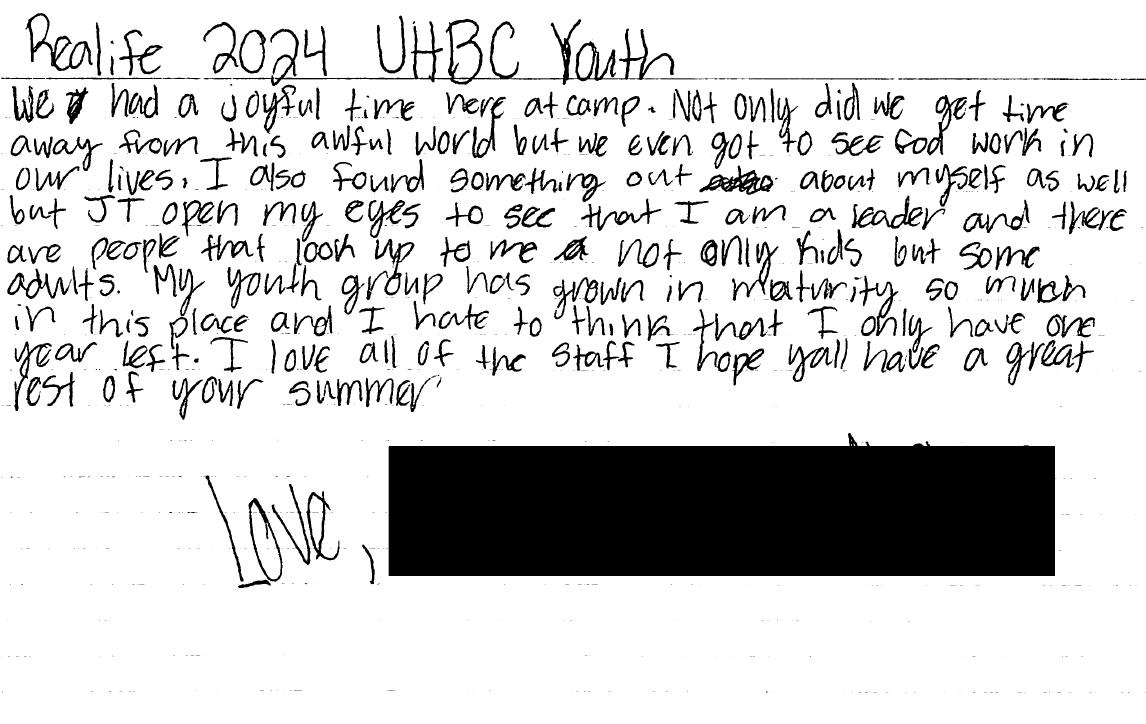 Realife 2024 UHBC Youth
We had a joyful time here at camp. Not only did we get time
away from this awful world but we even got to see God work in
our lives. I also found something out about myself as well
but JT open my eyes to see that I am a leader and there
are people that look up to me not only kids but some
adults. My youth group has grown in maturity so much
in this place and I hate to think that I only have one
year left. I love all of the staff I hope yall have a great
rest of your summer
Love,